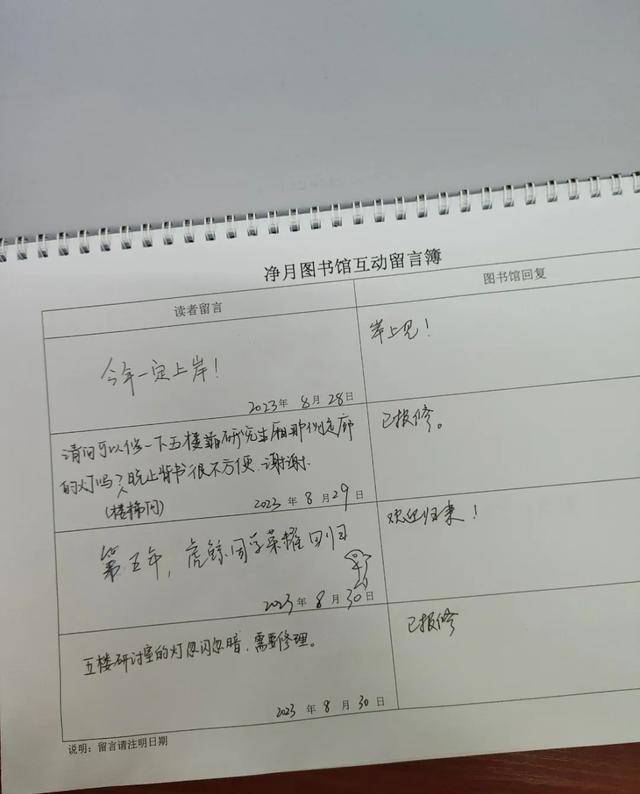 净月图书馆互动留言簿
读者留言
图书馆回复
今年一定上岸！
2023年 8月28日
岸上见！
请问可以修一下五楼 研究生厢那侧走廊
的灯吗？晚上背书很不方便.谢谢.
(楼梯间)
2023年8月29日
已报修。
第五年，虎鲸同学荣耀回归
2023年8月30日
欢迎归来！
五楼研讨室的灯忽闪忽暗，需要修理。
2023年8月30日
已报修
说明：留言请注明日期